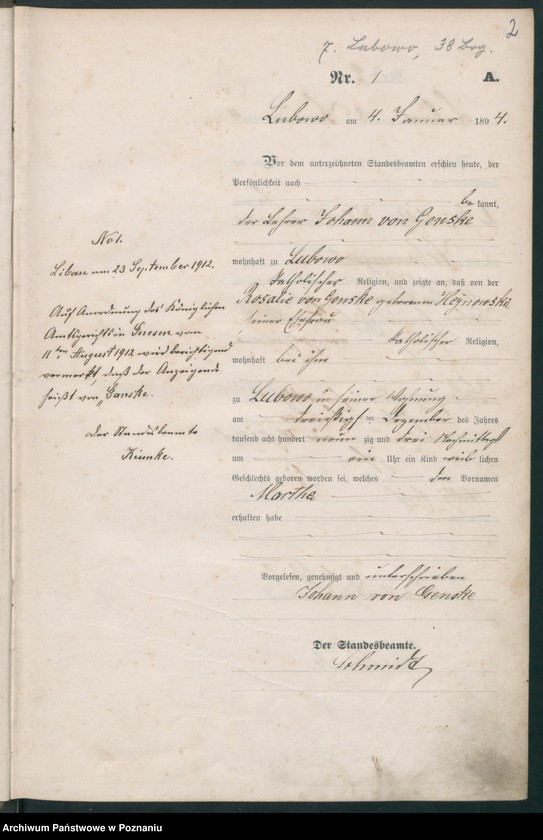 2
7. Lubowo, 38 Bog.
Nr. 1 A.
Lubowo am 4. Januar 1894.
Vor dem unterzeichneten Standesbeamten erschien heute, der
Persönlichkeit nach
be kannt,
der Lehrer Johann von Genske
wohnhaft zu Lubowo
katholischer Religion, und zeigte an, daß von der
Rosalie von Genske geborenen
seiner Ehefrau
katholischer Religion,
wohnhaft bei ihm
zu Lubowo in seiner Wohnung
am dreißigsten Dezember des Jahres
tausend acht hundert neun zig und drei Nachmittags
um ein Uhr ein Kind weib lichen
Geschlechts geboren worden sei, welches den Vornamen
Martha
erhalten habe
Vorgelesen, genehmigt und unterschrieben
Johann von Genske
Der Standesbeamte.
Schmidt
No 1.
am 23 September 1912.
Auf Anordnung des Königlichen
Amtsgerichts in Gnesen vom
11ten August 1912 wird berichtigend
vermerkt, daß der Anzeigende
heißt von „Ganske.
Der Standesbeamte
Archiwum Państwowe w Poznaniu